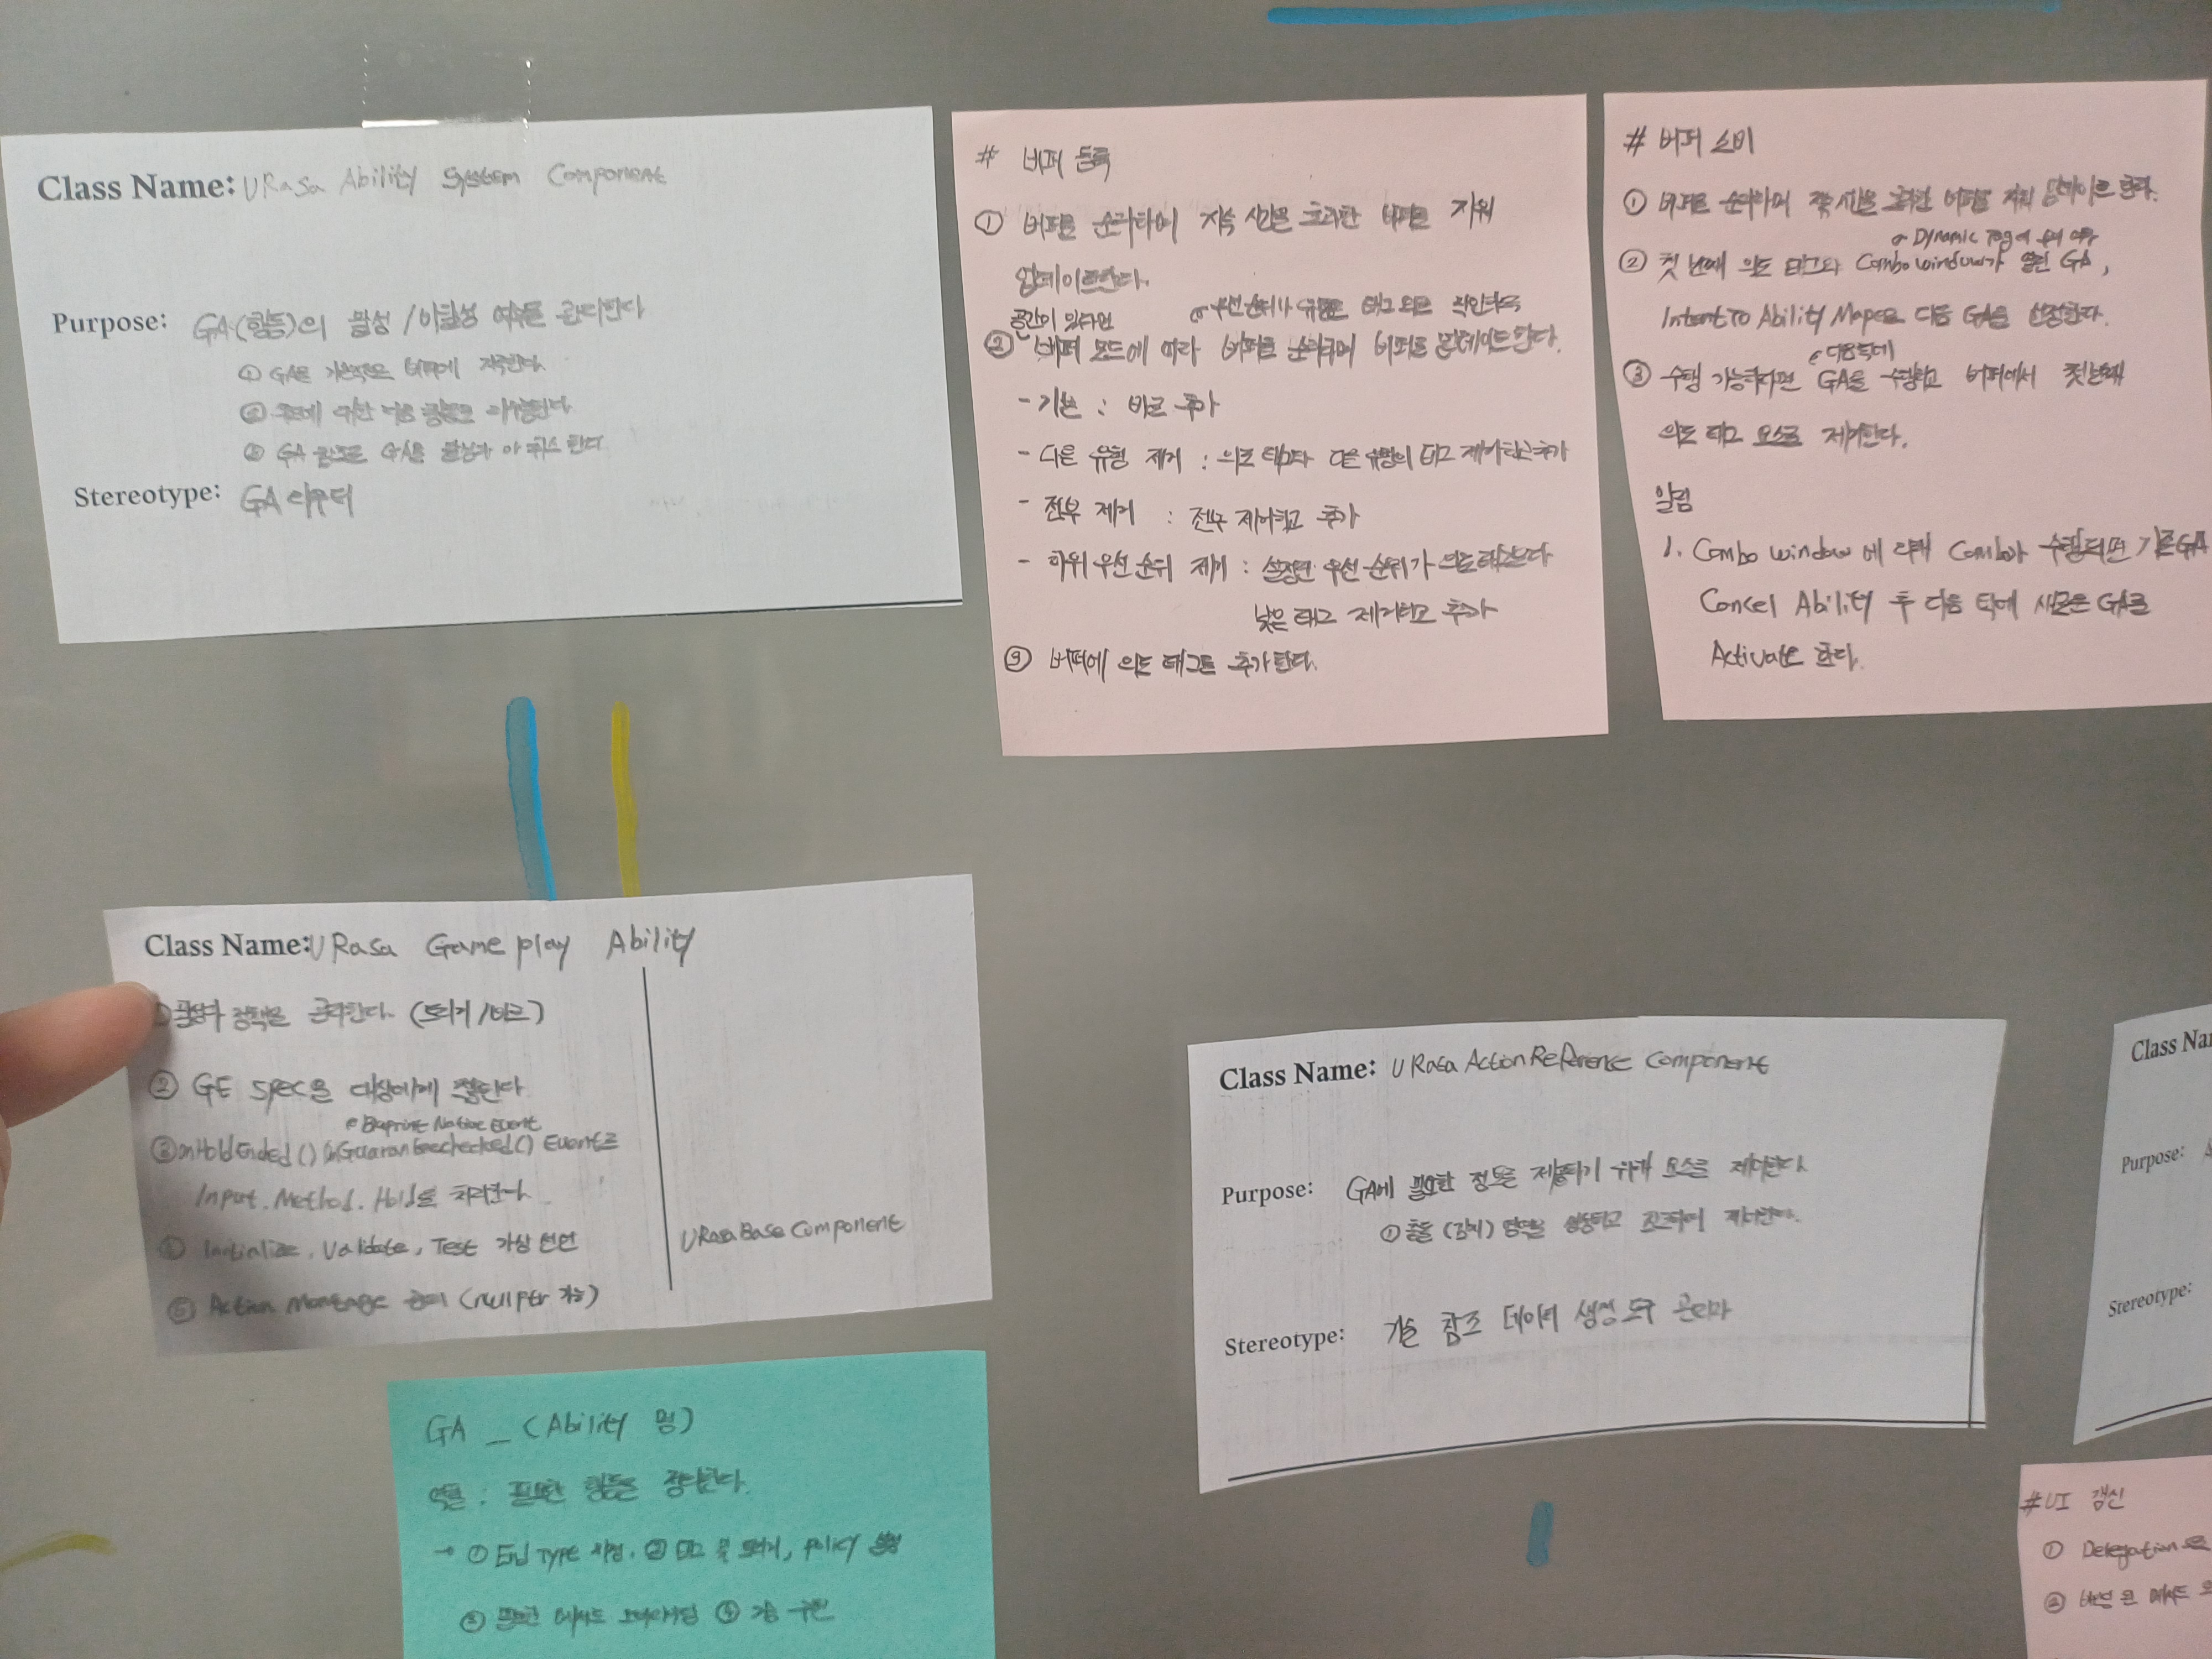 Class Name: URasa Ability System Component
Purpose: GA(행동)의 활성/비활성 여부를 관리한다
① GA를 기본적으로 버퍼에 저축한다.
②
③ GA 큐으로 GA를 활성화 한다.
Stereotype: GA 라우터
# 버퍼 등록
① 버퍼를 순회하며 지속 시간을 초과한 버퍼를 지워
업데이트한다.
공간이 있다면
② 버퍼 모드에 따라 버퍼를 순회하며 버퍼를 업데이트한다.
- 기본 : 바로 추가
- 다른 유형 제거 : 의도 태그와 다른 유형의 태그 제거하고 추가
- 전부 제거 : 전부 제거하고 추가
- 하위 우선 순위 제거 : 설정된 우선 순위가 의도 태그보다
낮은 태그 제거하고 추가
③ 버퍼에 의도 태그를 추가한다.
# 버퍼 소비
① 버퍼를 순회하며 지속 시간을 초과한 버퍼를 지워 업데이트 한다.
Dynamic Tag에
② 첫 번째 의도 태그와 Combo window가 열린 GA,
Intent To Ability Map으로 다음 GA를 선정한다.
다음 틱에
③ 수행 가능하다면 GA를 수행하고 버퍼에서 첫 번째
의도 태그 요소를 제거한다.
알림
1. Combo window에 의해 Combo가 수행되면 기존 GA
Cancel Ability 후 다음 틱에 새로운 GA를
Activate 한다.
Class Name: URasa Gameplay Ability
① 활성화 정책을 관리한다. (트리거/바로)
② GE Spec을 대상에게 전달한다.
Blueprint Native Event
③ OnHoldEnded() OnGuaranteechecked() Event로
Input.Method.Hold를 처리한다.
④ Initialize, Validate, Test 가상 선언
⑤ Action Montage 관리 (nullptr 가능)
URasaBaseComponent
GA _ (Ability 명)
역할 : 필요한 행동을 정의한다.
→ ① End Type 지정. ② 태그 및 트리거, Policy 설정
③ 필요한 메서드 오버라이딩 ④ 기능 구현
Class Name: URasaActionReference Component
Purpose: GA에 필요한 정보를 제공하기 위해 요소를 제어한다.
① 충돌 (감지) 영역을 생성하고 조회하여 제어한다.
Stereotype: 기술 참조 데이터 생성 도구 관리자
Class Na
Purpose:
Stereotype:
# UI 갱신
① Delegation으로
②